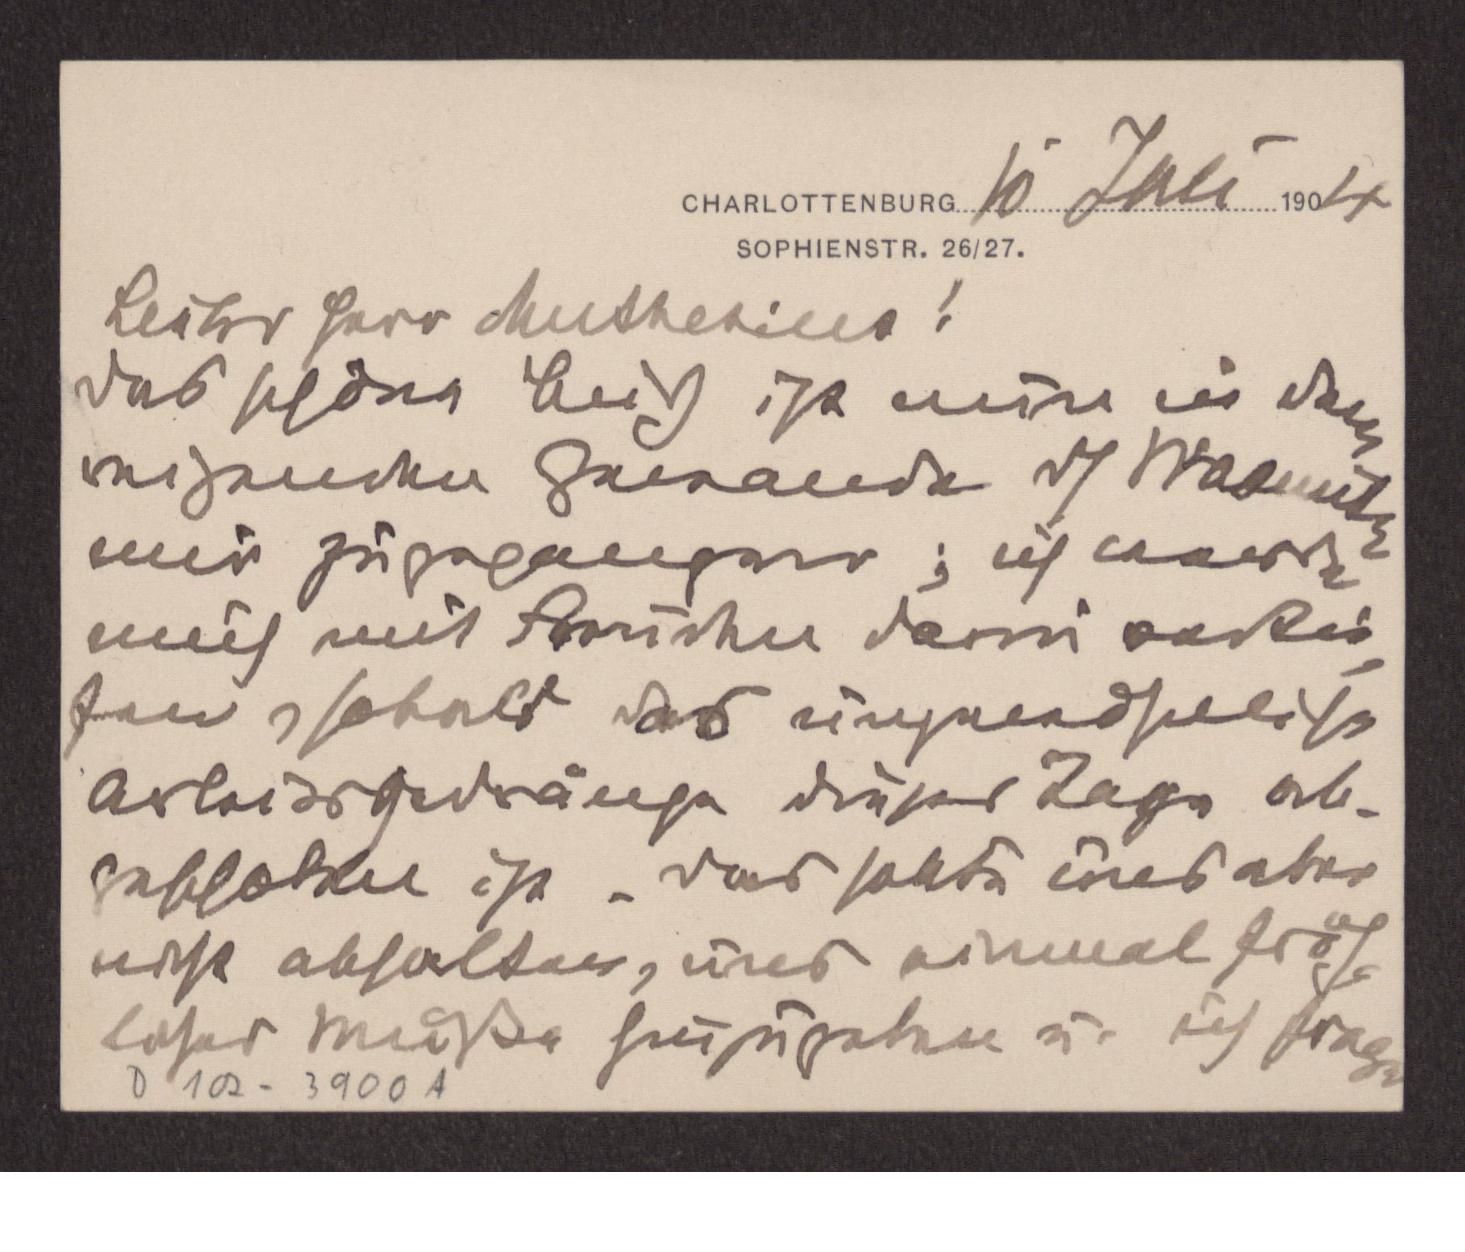 CHARLOTTENBURG 10 Juli 1904
SOPHIENSTR. 26/27.
Lieber Herr Muthesius!
das schöne Buch ist nun in dem
reizenden Gewande d/ Wasmuth
mir zugegangen; ich werde
mich mit Freuden darin vertie-
fen, sobald das
Arbeitsgedränge dieser Tage ab-
geschoben ist. das sollte uns aber
nicht abhalten, uns einmal fröh-
licher Muße hinzugeben u. ich frage
D 102-3900 A